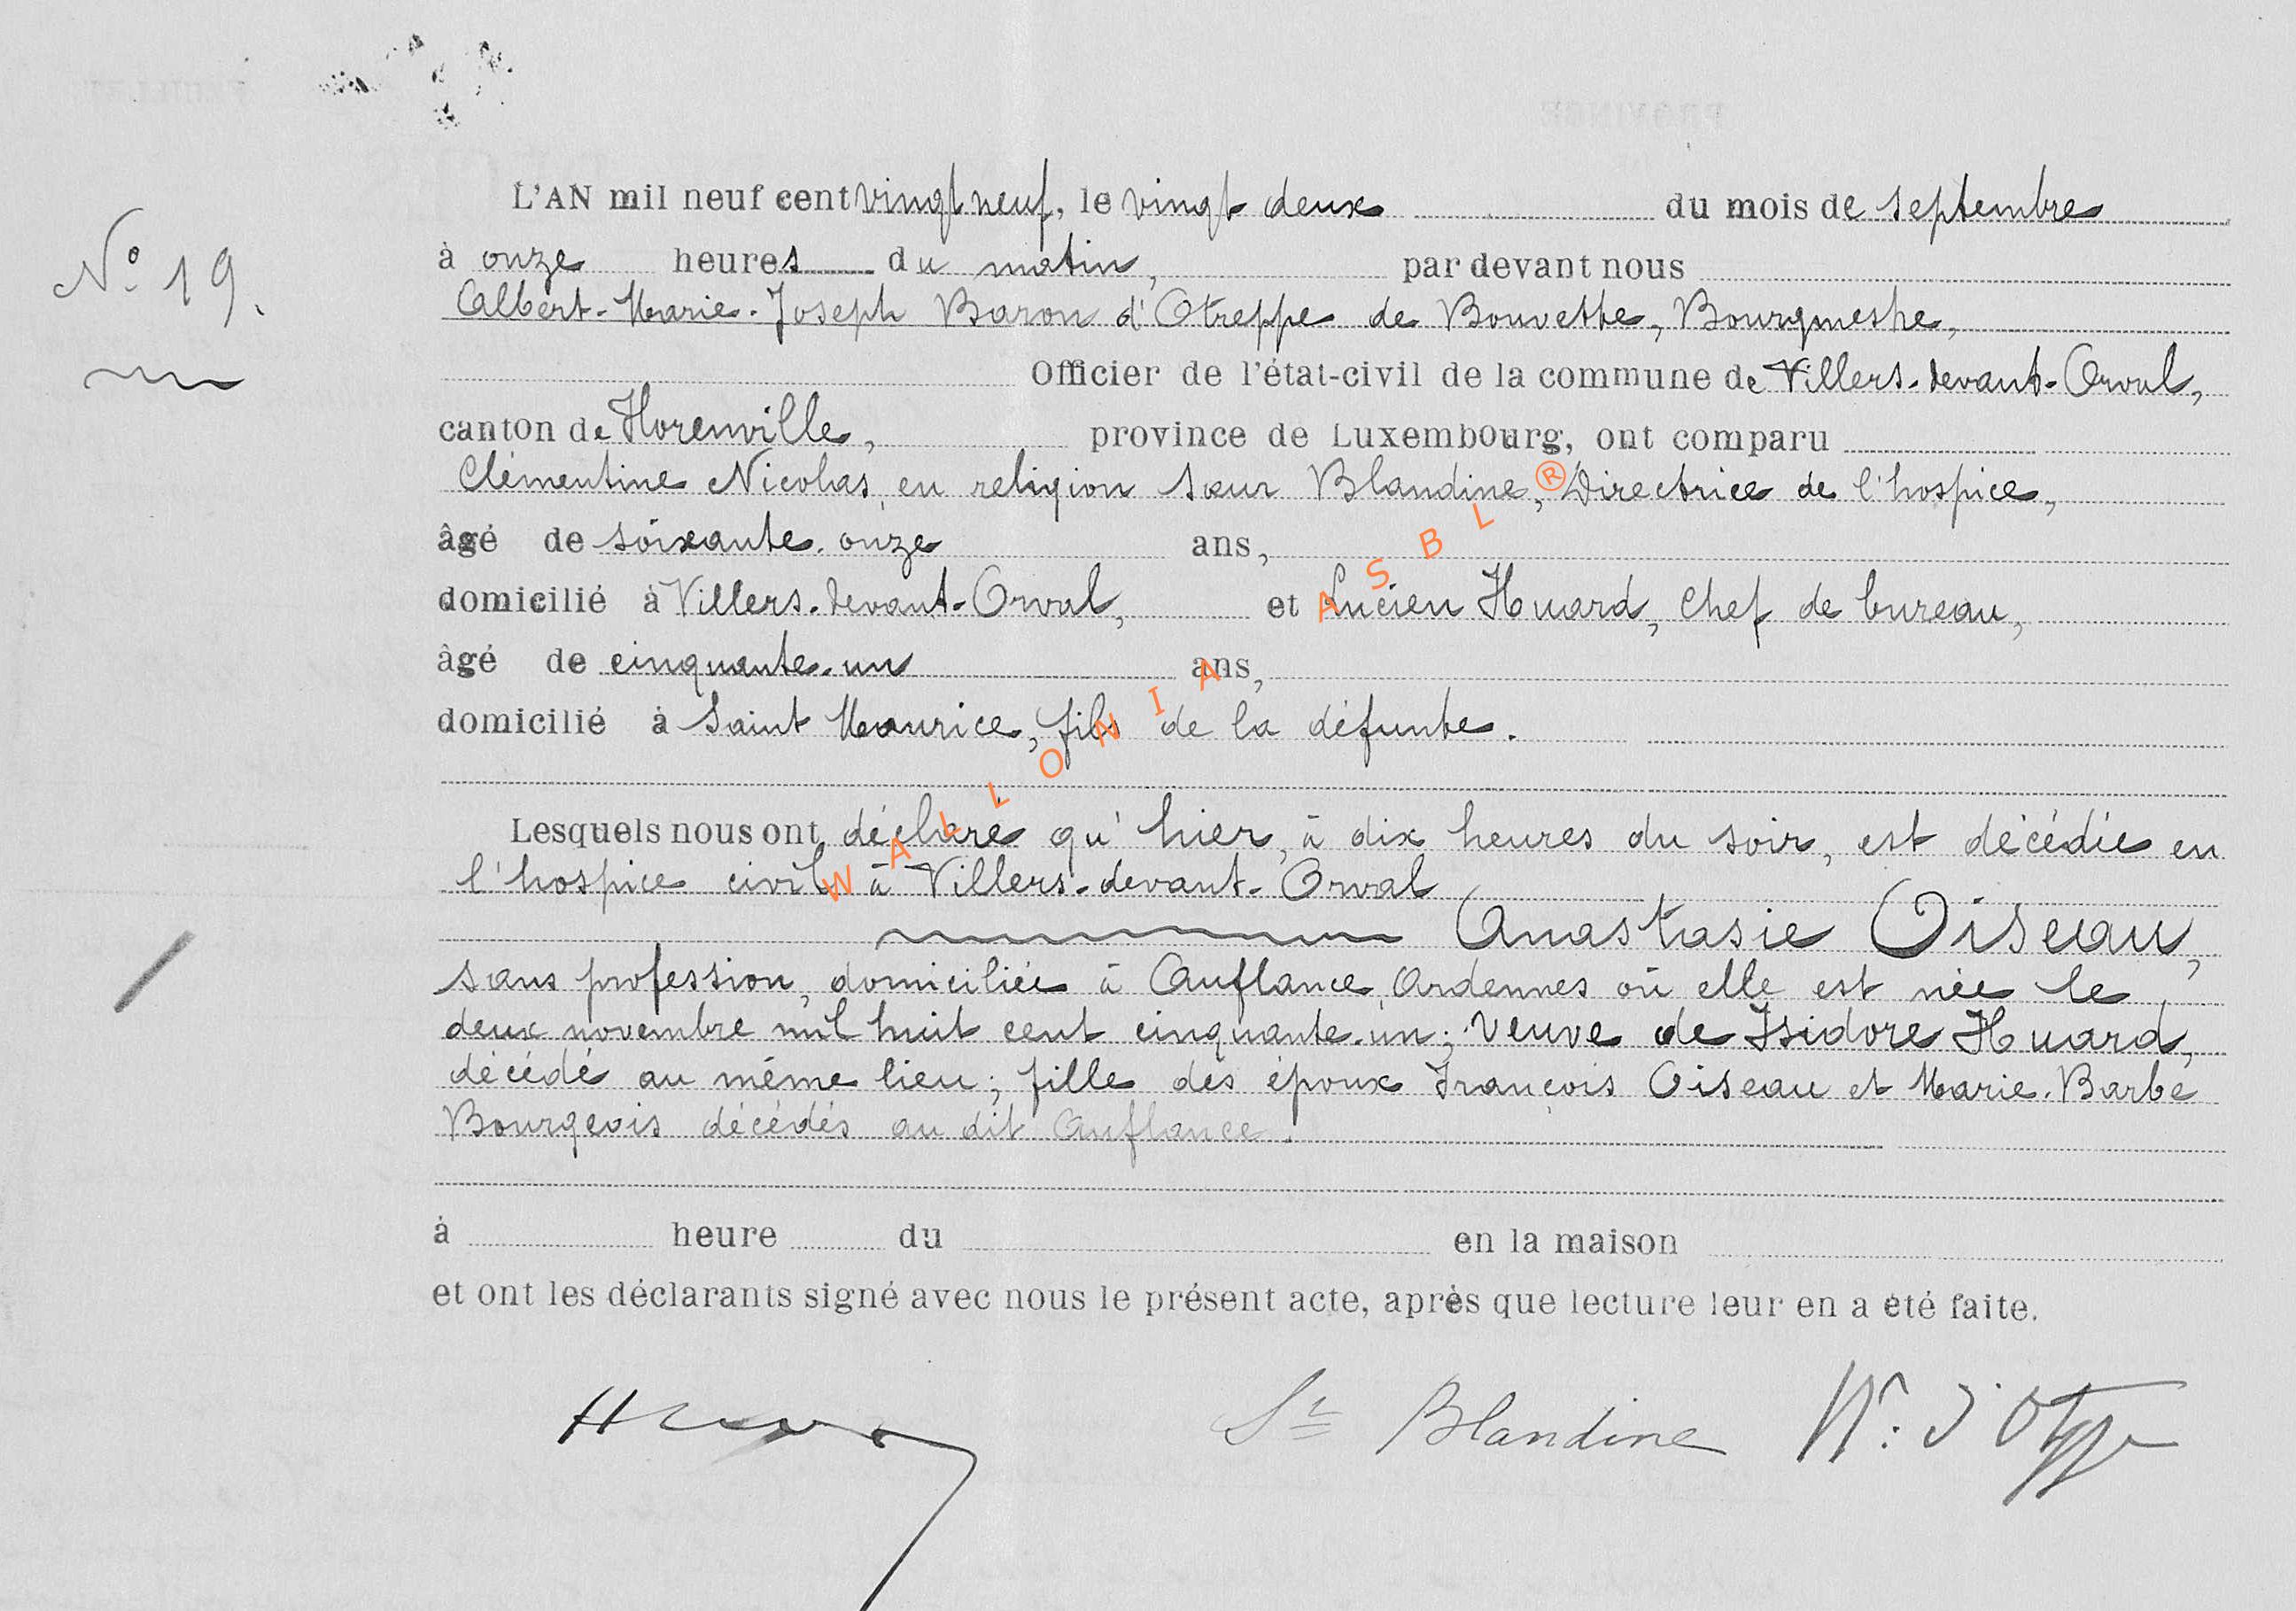 L'AN mil neuf cent vingt neuf, le vingt deux du mois de septembre
N° 19.
à onze heures du matin, par devant nous
Albert-Marie-Joseph Baron d'Otreppe de Bouvette, Bourgmestre,
Officier de l'état-civil de la commune de Villers-devant-Orval,
canton de Florenville, province de Luxembourg, ont comparu
Clémentine Nicolas, en religion sœur Blandine, Directrice de l'hospice,
âgé de soixante-onze ans,
domicilié à Villers-devant-Orval, et Lucien Huard, Chef de bureau,
âgé de cinquante-un ans,
domicilié à Saint Maurice, fils de la défunte.
Lesquels nous ont déclaré qu'hier, à dix heures du soir, est décédée en
l'hospice civil à Villers-devant-Orval
Anastasie Oiseau,
sans profession, domiciliée à Auflance, Ardennes où elle est née le
deux novembre mil huit cent cinquante-un; veuve de Isidore Huard,
décédé au même lieu; fille des époux François Oiseau et Marie-Barbe
Bourgeois décédés au dit Auflance.
à heure du en la maison
et ont les déclarants signé avec nous le présent acte, après que lecture leur en a été faite.
Sr Blandine
WALLONIA ASBL ®